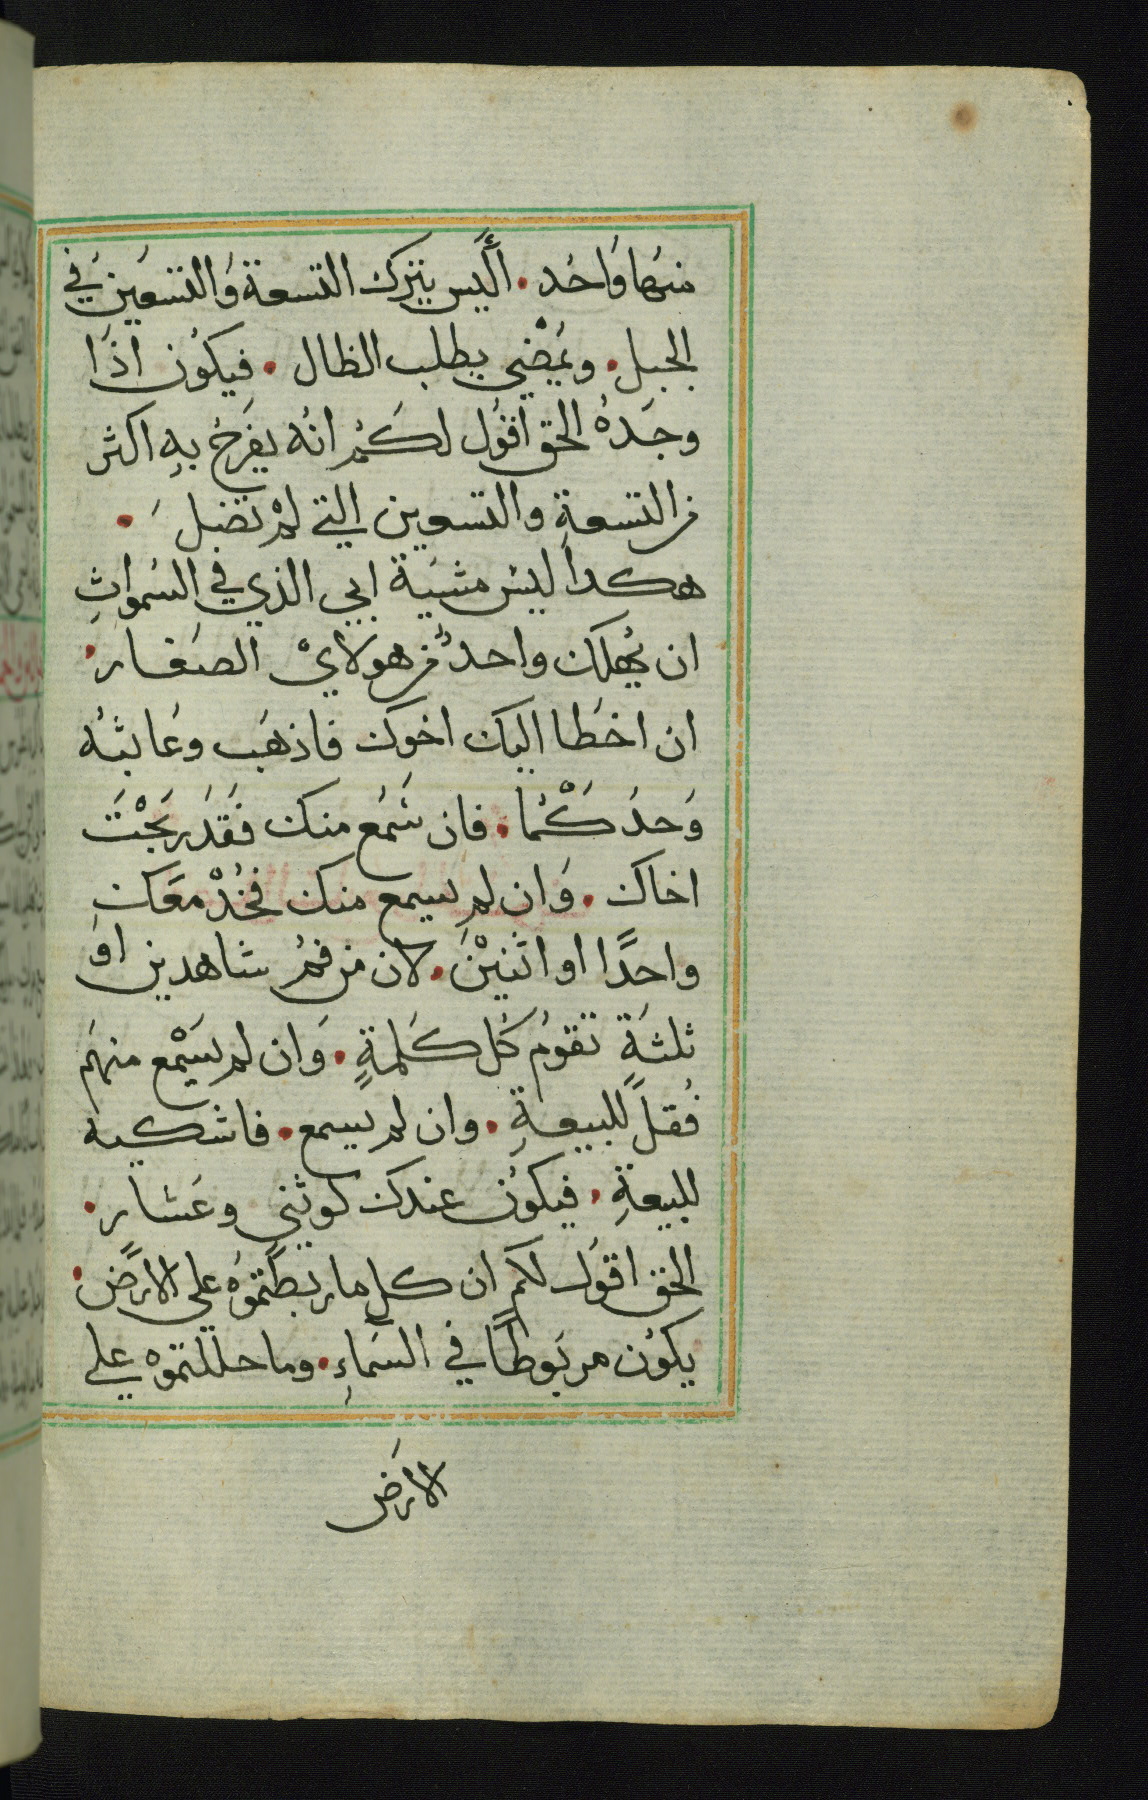 منها وَاحَد • الَيس يترك التسعة وَالتسعَين في
الجبل • ويمْضي يطلب الظال • فيكوُن اذَا
وجَدهُ الحق اقوُل لكَمُ انهُ يفرَحُ بهِ اكثر
من التسعةِ والتسعين التي لمْ تضل •
هكدا ليسَ مشيَة ابي الذي في السَموَاتِ
ان يُهلك واحدٌ من هولايْ الصغَار •
ان اخطَا اليك اخوك فاذهَب وعَاتبهُ
وَحدَكْمُا • فان سَمَع منك فَقدَ ربَحْتَ
اخاك • وَان لم يسمع منك فَخُدْ معَك
واحدًا او اثنيْنَ • لان من فمُ شاهدين اوَ
ثلثةٍ تقومُ كُل كلمَةٍ • وَان لم يسَمْع منهَم
فُقلَ للبيعةِ • وان لم يسمع • فاشكيه
للبيعةِ • فيكوُن عندك كوثني وعَشار •
الحق اقوُل لكم ان كل ما ربطَتموُه على الارَض •
يكوُن مربَوطًا في السَماءِ • وما حللتموه على
الارَض